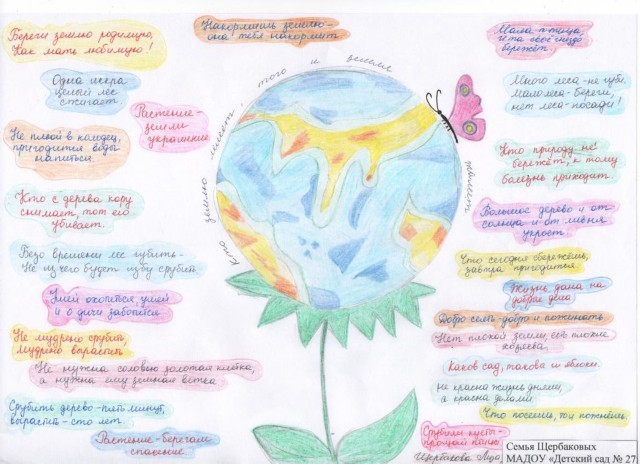 Береги землю родимую,
Как мать любимую!
Одна искра
целый лес
сжигает.
Растение-
земли
украшение
Не плюй в колодец,
пригодится вода
напиться.
Кто с дерева кору
снимает, тот его
убивает.
Безо времени лес губить-
Не из чего будет избу срубить
Умей охотиться, умей
и о дичи заботься
Не мудрено срубить,
мудрено вырастить
Не нужна соловью золотая клетка,
а нужна ему зеленая ветка.
Срубить дерево-пять минут,
вырастить-сто лет.
Растение-берегам
спасение
Накормишь землю-
она тебя накормит
Кто землю лелеет, того и земля жалеет
Мала птица,
и та свое гнездо
бережёт.
Много леса-не губи,
мало леса-береги,
нет леса-посади!
Кто природу не
бережёт, к тому
болезнь приходит.
Большое дерево и от
солнца и от ливня
укроет.
Что сегодня сбережешь,
завтра пригодится
Жизнь дана на
добрые дела
Добро сеять-добро и пожинать
Нет плохой земли, есть плохие
хозяева.
Каков сад, таковы и яблоки.
Не красна жизнь днями,
а красна делами
Что посеешь, то и пожнёшь.
Срубили кусты-
прощай птицы
Щербакова
Семья Щербаковых
МАДОУ «Детский сад № 27